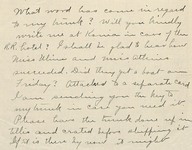 What word has come in regard
to my trunk? Will you kindly
write me at Kansas in care of the
R.R. hotel? I shall be glad to hear how
Miss Kline and Miss Stevens
succeeded. Did they get a boat on
Friday? Attached to a separate card
I am sending you the key to
my trunk in case you need it.
Please have the trunk done up in
and crated before shipping it
If it is there by now it might